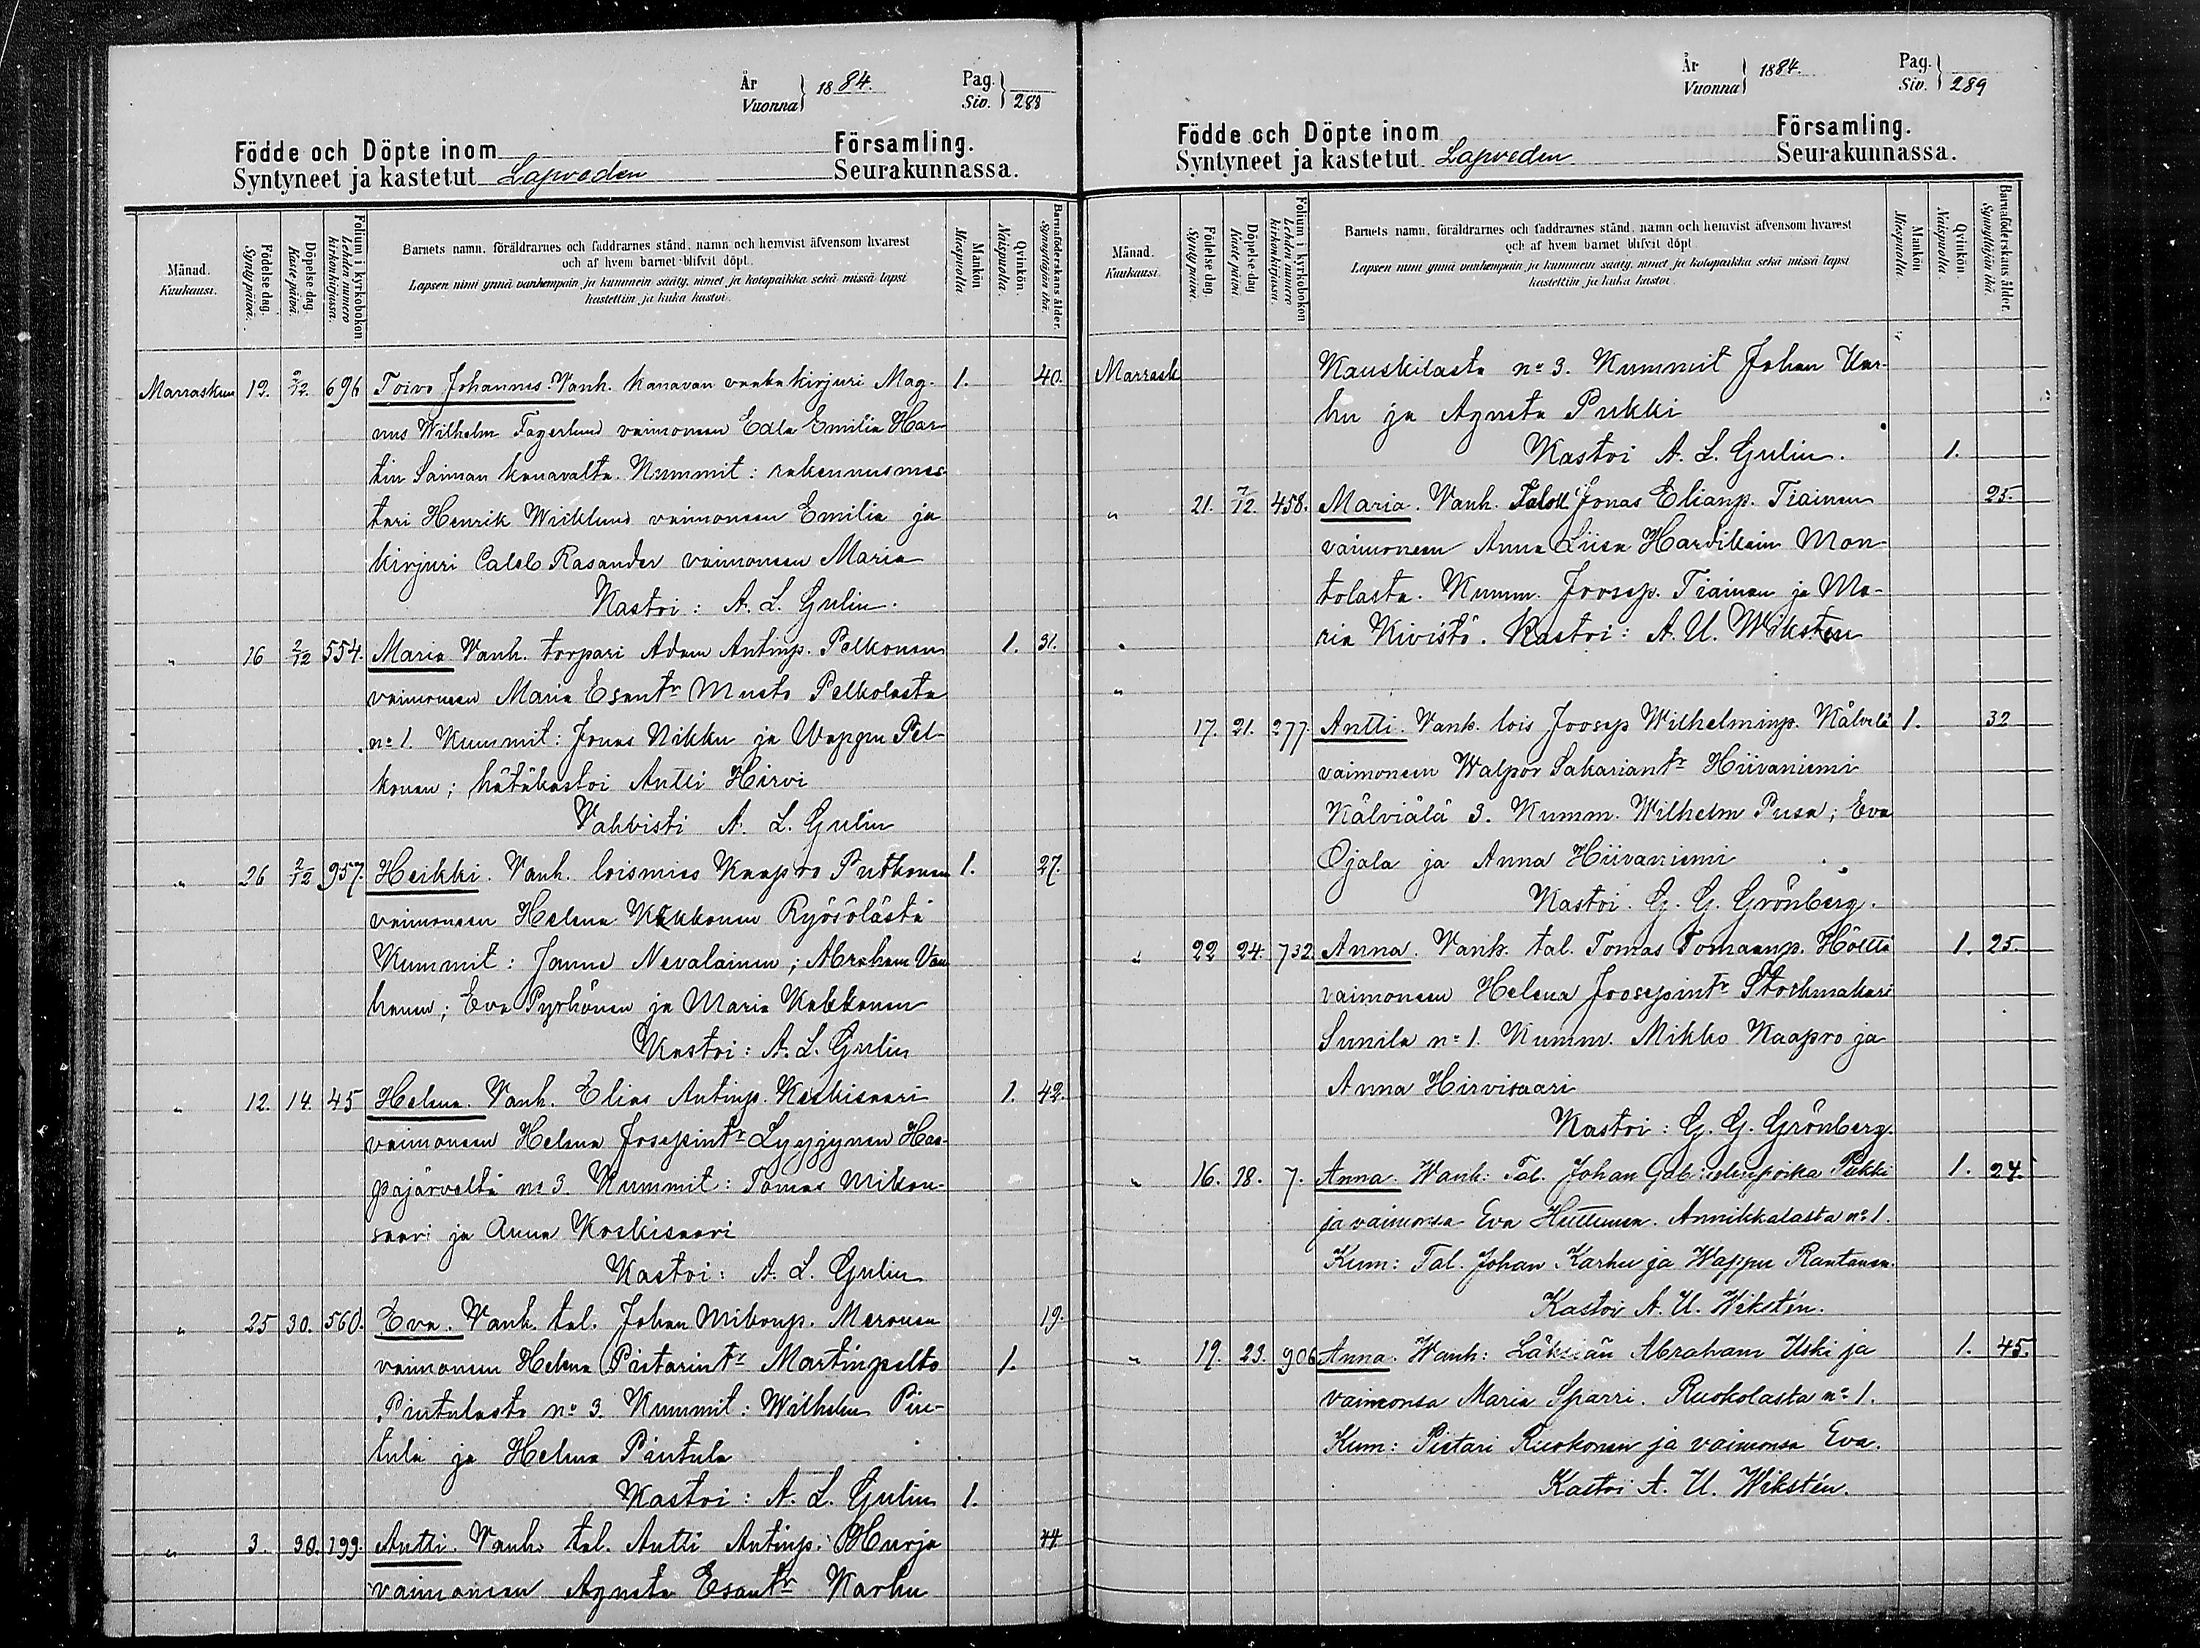 År
Vuonna
1884.
Pag.
Siv.
288
Födde och Döpte inom
Församling.
Syntyneet ja kastetut Lapveden Seurakunnassa.
Månad.
Kuukausi.
Födelse dag.
Synty päivä.
Döpelse dag.
Kaste päivä.
Folium i kyrkoboken
Lehden numero kirkonkirjassa.
Barnets namn, föräldrarnes och faddrarnes stånd, namn och hemvist äfvensom hvarest
och af hvem barnet blifvit döpt.
Lapsen nimi ynnä vanhempain ja kummein sääty, nimet ja kotopaikka sekä missä lapsi
kastettiin ja kuka kastoi.
Mankön
Miespuolta
Qvinkön.
Naispuolta.
Barnaföderskans ålder.
Synnyttäjän ikä.
Marraskuu 12. 2/12. 696 Toivo Johannes. Vanh. kanavan vaaka kirjuri Mag- 1. 40.
nus Wilhelm Fagerlund vaimoneen Edla Emilia Har-
tin Saiman kanavalta. Kummit: rakennusmes-
tari Henrik Wiklund vaimoneen Emilia ja
kirjuri Caleb Rasander vaimoneen Maria
Kastoi: A. L. Gulin.
" 16 2/12 554. Maria Vanh. torpari Adam Antinp. Pelkonen 1. 31.
vaimoneen Maria Esantr Musto Pelkolasta
no 1. Kummit: Jonas Nikku ja Wappu Pel-
konen; hätäkastoi Antti Hirvi
Vahvisti A. L. Gulin
" 26 2/12 957. Heikki. Vanh. loismies Kaapro Putkonen 1. 27.
vaimoneen Helena Kekkonen Ryösölästä
Kummit: Janne Nevalainen; Abraham Van-
hanen; Eva Pyrhönen ja Maria Kekkonen
Kastoi: A. L. Gulin
" 12. 14. 45 Helena. Vanh. Elias Antinp. Koskisaari 1. 42.
vaimoneen Helena Josepintr Lyyjynen Haa-
pajärveltä no 3. Kummit: Tomas Mikon-
saari ja Anna Koskisaari
Kastoi: A. L. Gulin
" 25 30. 560. Eva. Vanh. tal. Johan Mikonp. Meronen 19.
vaimoneen Helena Pistarintr Martinpelto 1.
Pintulasta no 3. Kummit: Wilhelm Pin-
tula ja Helena Pintula
Kastoi: A. L. Gulin 1.
" 3. 30. 199. Antti. Vanh. tal. Antti Antinp. Hurja 44.
vaimoneen Agneta Esantr Karhu
År
Vuonna
1884.
Pag.
Siv.
289
Födde och Döpte inom
Församling.
Syntyneet ja kastetut Lapveden Seurakunnassa.
Månad.
Kuukausi.
Födelse dag.
Synty päivä.
Döpelse dag
Kaste päivä
Folium i kyrkoboken
Lehden numero kirkonkirjassa.
Barnets namn, föräldrarnes och faddrarnes stånd, namn och hemvist äfvensom hvarest
och af hvem barnet blifvit döpt.
Lapsen nimi ynnä vanhempain ja kummein sääty, nimet ja kotopaikka sekä missä lapsi
kastettiin ja kuka kastoi.
Mankön
Miespuolta
Qvinkön
Naispuolta
Barnaföderskans ålder.
Synnyttäjän ikä.
Marrask Kauskilasta no 3. Kummit Johan Kar-
hu ja Agneta Pukki
Kastoi A. L. Gulin. 1.
" 21. 7/12. 458. Maria. Vanh. Taloll Jonas Elianp. Tiainen 25.
vaimoneen Anna Liisa Hardikain Mon-
tolasta. Kumm. Joosep. Tiainen ja Ma-
ria Kivistö. Kastoi: A. U. Wikstén
"
17. 21. 277. Antti. Vanh. lois Joosep Wilhelminp. Kälvelä 1. 32
vaimoneen Walpor Sakariantr Hiivaniemi
Kälviälä 3. Kumm. Wilhelm Pusa; Eva
Ojala ja Anna Hiivaniemi
Kastoi. G. G. Grönberg.
" 22 24. 732. Anna. Vanh. tal. Tomas Tomaanp. Hölttä 1. 25.
vaimoneen Helena Joosepintr Storkmakari
Sunila no 1. Kumm. Mikko Kaapro ja
Anna Hirvisaari
Kastoi: G. G. Grönberg.
" 16. 18. 7. Anna. Wanh: Tal. Johan Gabrielinpoika Pukki 1. 24.
ja vaimonsa Eva Huttunen. Annikkalasta no 1.
Kum: Tal. Johan Karhu ja Wappu Rantanen.
Kastoi A. U. Wikstén.
" 19. 23. 906 Anna. Wanh: Abraham Uski ja 1. 45.
vaimonsa Maria Sparri. Ruokolasta no 1.
Kum: Pistari Ruokonen ja vaimonsa Eva.
Kastoi A. U. Wikstén.